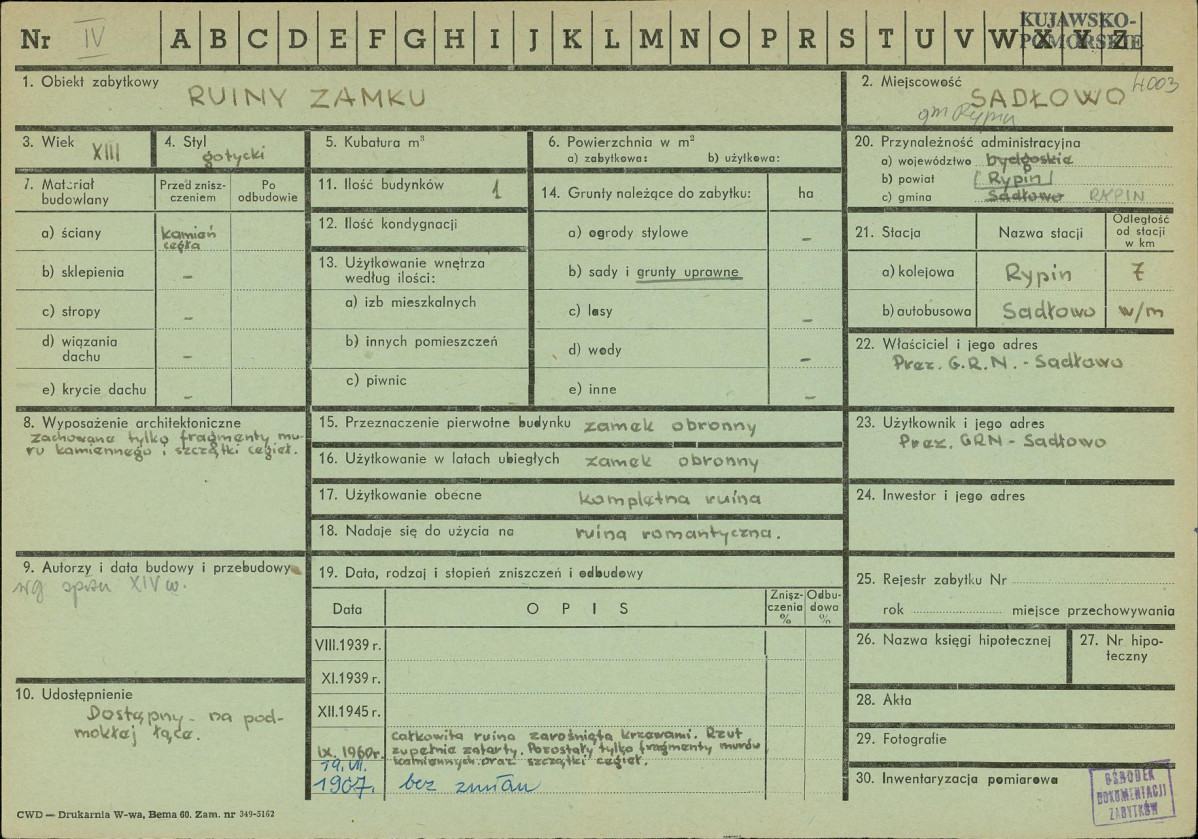 Nr IV A B C D E F G H I J K L M N O P R S T U V W X Y Z
KUJAWSKO-
POMORSKIE
1. Obiekt zabytkowy
RUINY ZAMKU
2. Miejscowość
4003
SADŁOWO
gm Rypin
3. Wiek XIII
4. Styl
gotycki
5. Kubatura m³
6. Powierzchnia w m²
a) zabytkowa: b) użytkowa:
20. Przynależność administracyjna
a) województwo bydgoskie
b) powiat Rypin
c) gmina Sadłowo RYPIN
7. Materiał
budowlany
Przed znisz-
czeniem
Po
odbudowie
a) ściany kamień
cegła
b) sklepienia –
c) stropy –
d) wiązania
dachu –
e) krycie dachu –
11. Ilość budynków 1
12. Ilość kondygnacji
13. Użytkowanie wnętrza
według ilości:
a) izb mieszkalnych
b) innych pomieszczeń
c) piwnic
14. Grunty należące do zabytku: ha
a) ogrody stylowe –
b) sady i grunty uprawne
c) lasy –
d) wody –
e) inne –
21. Stacja Nazwa stacji
Odległość
od stacji
w km
a) kolejowa Rypin 7
b) autobusowa Sadłowo w/m
22. Właściciel i jego adres
Prez. G.R.N. - Sadłowo
8. Wyposażenie architektoniczne
zachowane tylko fragmenty mu-
ru kamiennego i szczątki cegieł.
15. Przeznaczenie pierwotne budynku zamek obronny
16. Użytkowanie w latach ubiegłych zamek obronny
17. Użytkowanie obecne kompletna ruina
18. Nadaje się do użycia na ruina romantyczna.
23. Użytkownik i jego adres
Prez. GRN - Sadłowo
24. Inwestor i jego adres
9. Autorzy i data budowy i przebudowy
wg spisu XIV w.
19. Data, rodzaj i stopień zniszczeń i odbudowy
Data OPIS
Znisz-
czenia
%
Odbu-
dowa
%
VIII.1939 r.
XI.1939 r.
XII.1945 r.
IX. 1960r.
całkowita ruina zarośnięta krzewami. Rzut
zupełnie zatarty. Pozostały tylko fragmenty murów
kamiennych oraz szczątki cegieł.
19. VII.
1967. bez zmian
25. Rejestr zabytku Nr
rok miejsce przechowywania
26. Nazwa księgi hipotecznej
27. Nr hipo-
teczny
28. Akta
29. Fotografie
30. Inwentaryzacja pomiarowa
10. Udostępnienie
Dostępny - na pod-
mokłej łące.
OŚRODEK
DOKUMENTACJI
ZABYTKÓW
CWD — Drukarnia W-wa, Bema 60. Zam. nr 349-5162